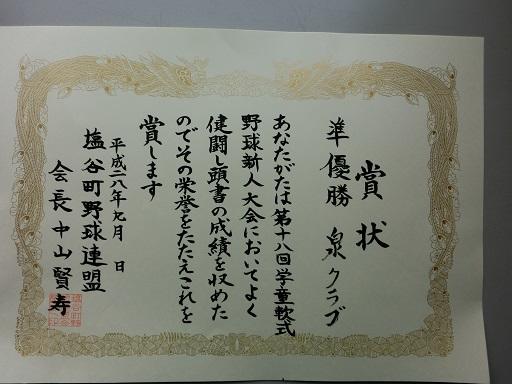 賞状
準優勝 泉クラブ
あなたがたは第十八回学童軟式
野球新人大会においてよく
健闘し頭書の成績を収めた
のでその栄誉をたたえこれを
賞します
平成二八年九月 日
塩谷町野球連盟
会長中山賢寿